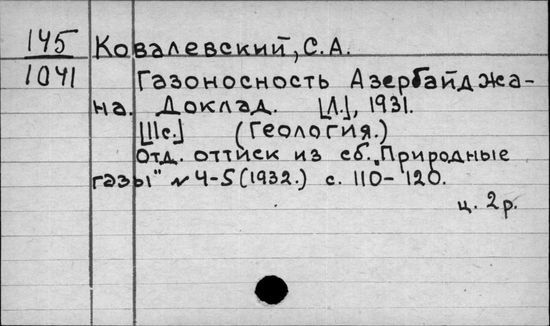 145 Ковалевский, С.А.
1041 Газоносность Азербайджа-
на. Доклад. [Л.], 1931.
[11с.] (Геология.)
Отд. оттиск из сб. „Природные
газы" № 4-5 (1932.) с. 110-120.
ц. 2р.